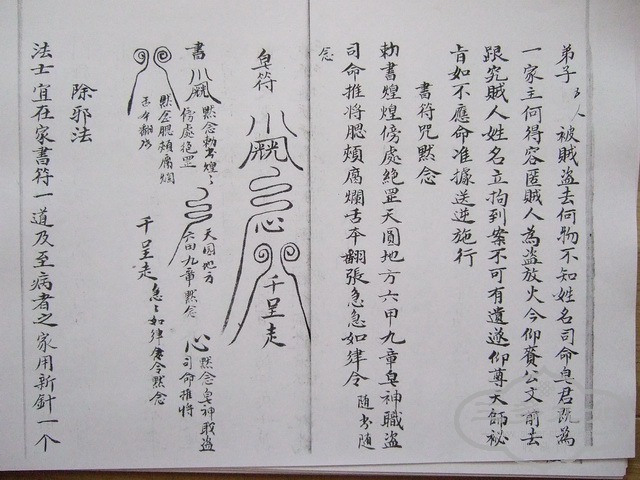 弟子ム人被賊盗去何物不知姓名司命皂君既為
一家主何得容匿賊人為盗放火今仰賫公文前去
跟究賊人姓名立拘到案不可有遺遂仰尊天師祕
肯如不應命准據送逆施行
書符咒默念
勅書煌煌傍處絶罡天圓地方六甲九章皂神職盗
司命推将腮頰腐爛舌本翻張急急如律令随书随
念
皂符
心
千里走
書
默念勅书煌々
傍處绝罡
天圓地方
六甲九章默念
心
默念皂神職盗
司命推将
默念腮頰腐爛
舌本翻张
千里走
急々如律令默念
除邪法
法士宜在家書符一道及至病者之家用新針一个